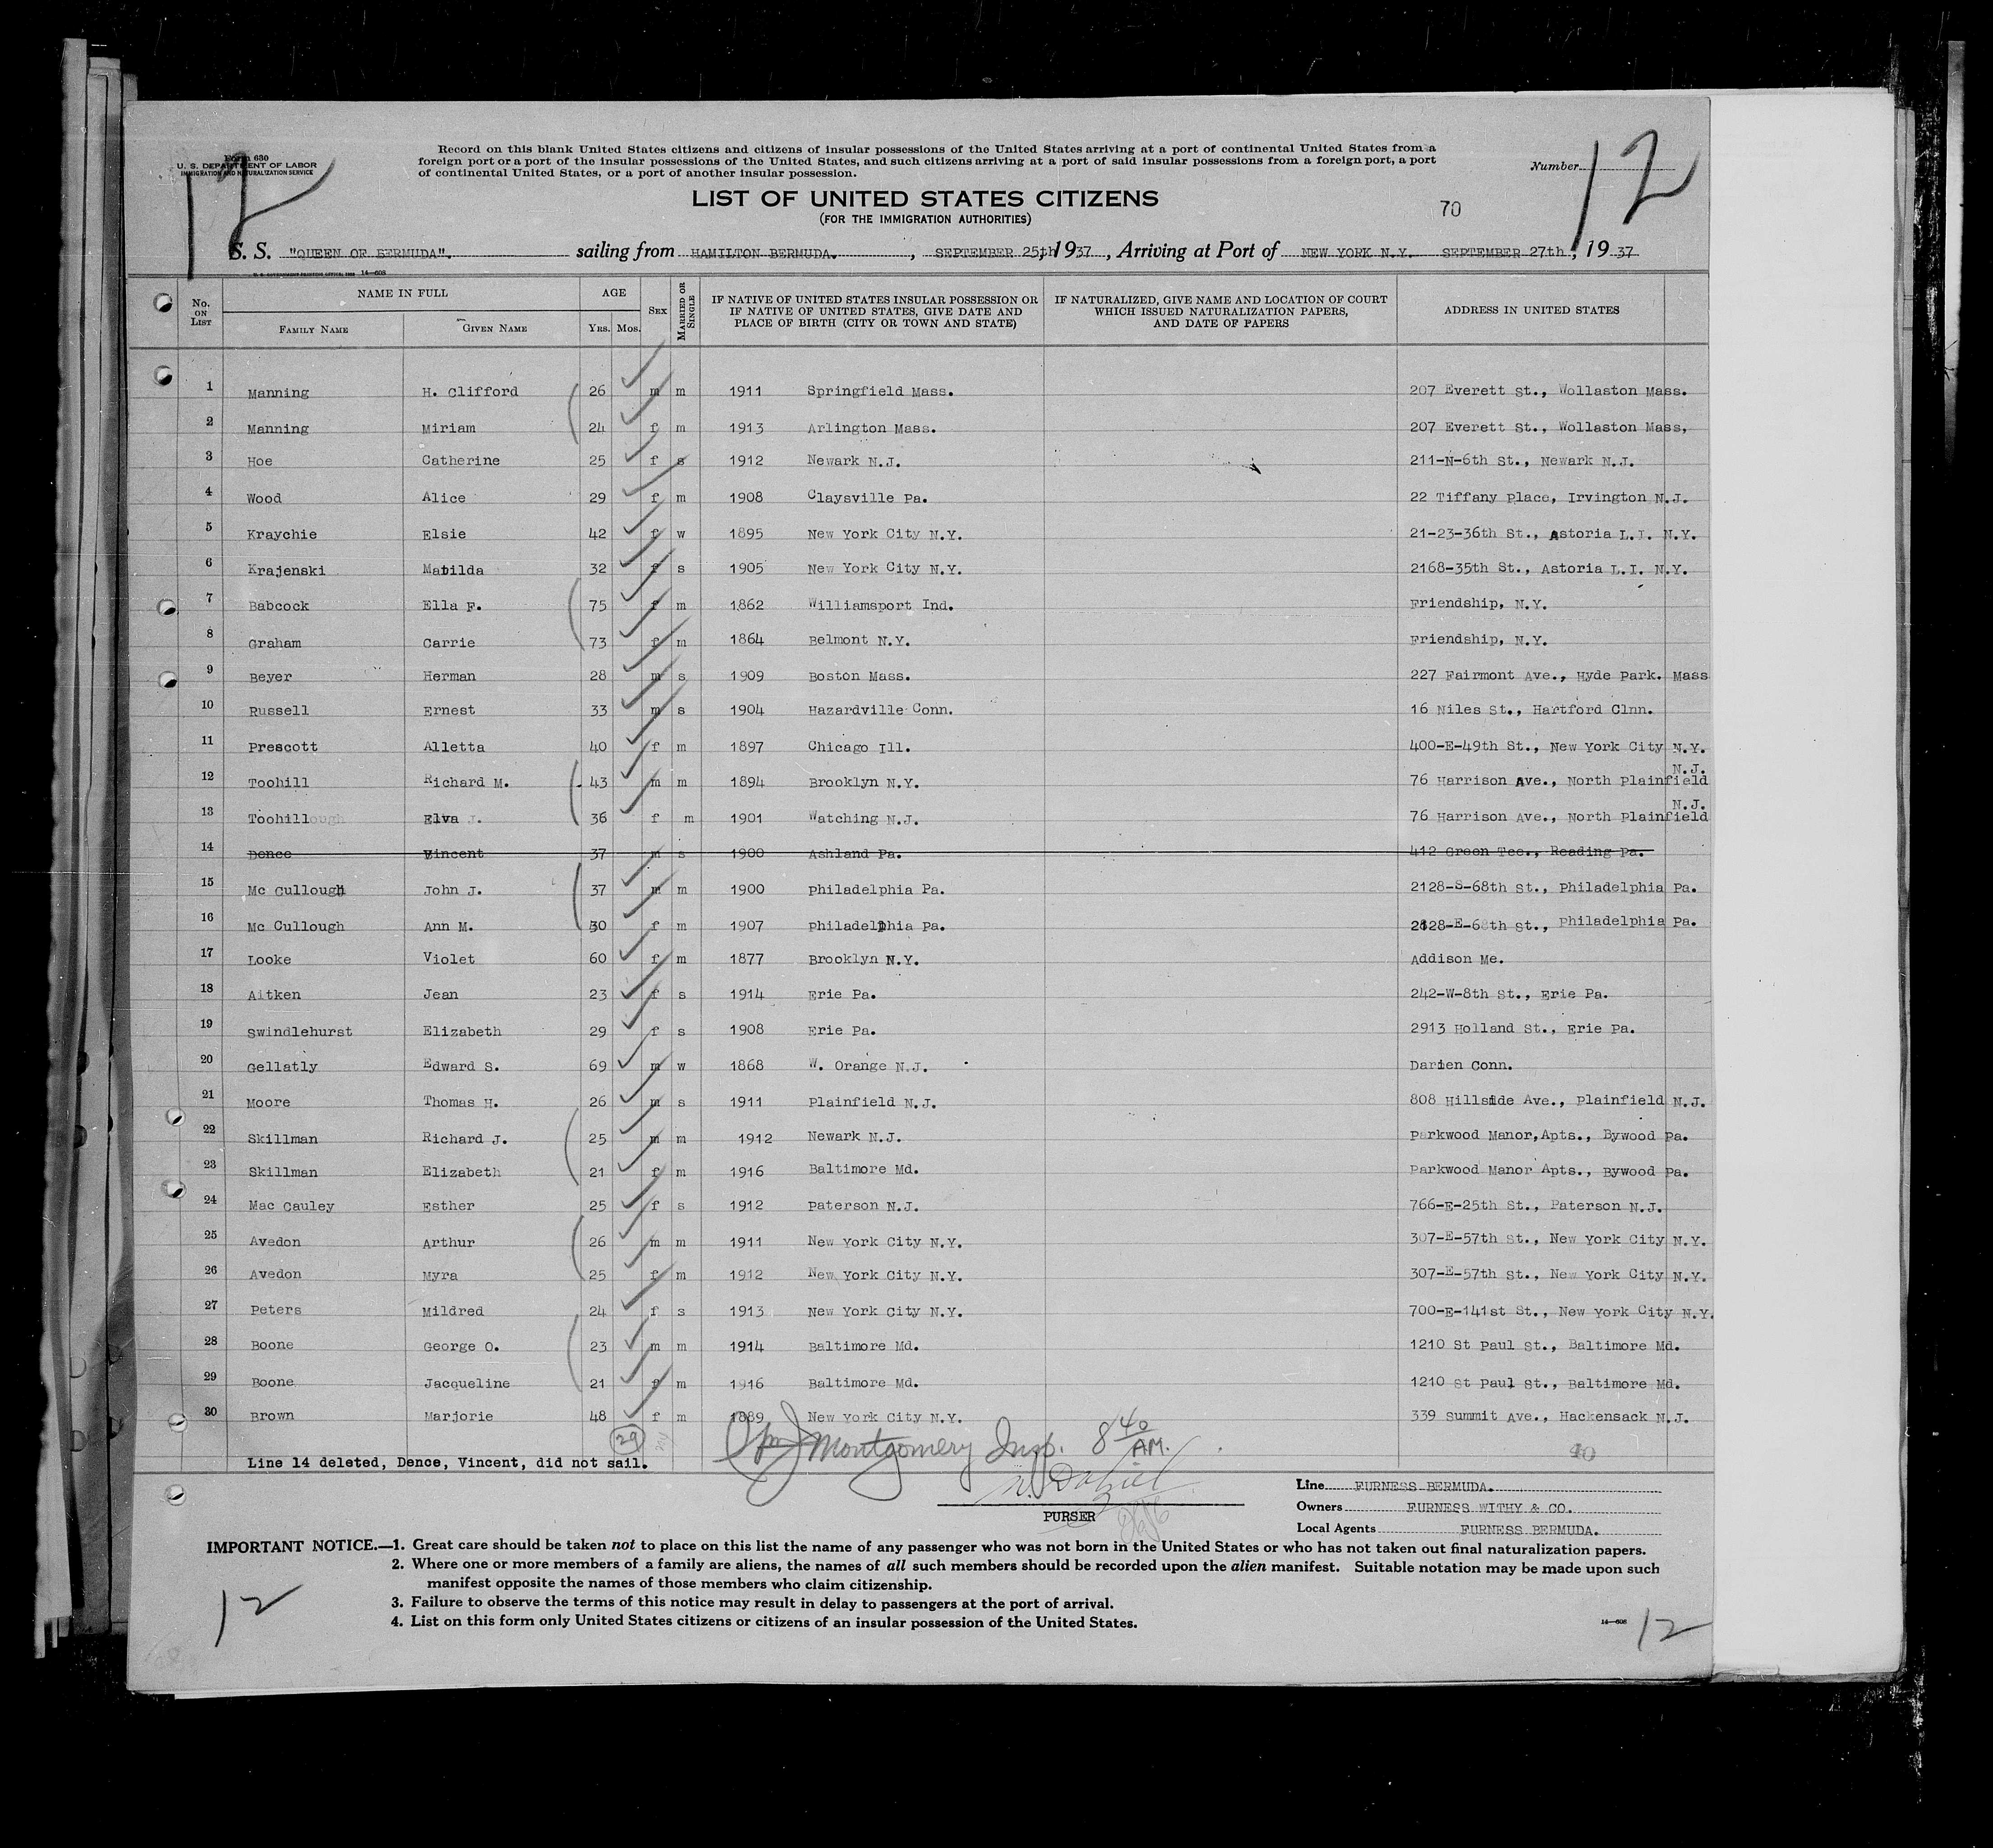 Form 630
U. S. DEPARTMENT OF LABOR
IMMIGRATION AND NATURALIZATION SERVICE
12
Record on this blank United States citizens and citizens of insular possessions of the United States arriving at a port of continental United States from a
foreign port or a port of the insular possessions of the United States, and such citizens arriving at a port of said insular possessions from a foreign port, a port
of continental United States, or a port of another insular possession.
Number 12
LIST OF UNITED STATES CITIZENS
(FOR THE IMMIGRATION AUTHORITIES)
70
S. S. "QUEEN OF BERMUDA". sailing from HAMILTON BERMUDA. , SEPTEMBER 25th, 1937, Arriving at Port of NEW YORK N.Y. SEPTEMBER 27th, 1937
U. S. GOVERNMENT PRINTING OFFICE: 14—608
No. ON LIST NAME IN FULL FAMILY NAME GIVEN NAME AGE YRS. MOS. SEX MARRIED OR SINGLE IF NATIVE OF UNITED STATES INSULAR POSSESSION OR IF NATIVE OF UNITED STATES, GIVE DATE AND PLACE OF BIRTH (CITY OR TOWN AND STATE) IF NATURALIZED, GIVE NAME AND LOCATION OF COURT WHICH ISSUED NATURALIZATION PAPERS, AND DATE OF PAPERS ADDRESS IN UNITED STATES
1 Manning H. Clifford 26 m m 1911 Springfield Mass. 207 Everett St., Wollaston Mass.
2 Manning Miriam 24 f m 1913 Arlington Mass. 207 Everett St., Wollaston Mass,
3 Hoe Catherine 25 f s 1912 Newark N.J. 211-N-6th St., Newark N.J.
4 Wood Alice 29 f m 1908 Claysville Pa. 22 Tiffany Place, Irvington N.J.
5 Kraychie Elsie 42 f w 1895 New York City N.Y. 21-23-36th St., Astoria L.I. N.Y.
6 Krajenski Matilda 32 f s 1905 New York City N.Y. 2168-35th St., Astoria L.I. N.Y.
7 Babcock Ella F. 75 f m 1862 Williamsport Ind. Friendship, N.Y.
8 Graham Carrie 73 f m 1864 Belmont N.Y. Friendship, N.Y.
9 Beyer Herman 28 m s 1909 Boston Mass. 227 Fairmont Ave., Hyde Park. Mass
10 Russell Ernest 33 m s 1904 Hazardville Conn. 16 Niles St., Hartford Clnn.
11 Prescott Alletta 40 f m 1897 Chicago Ill. 400-E-49th St., New York City N.Y.
12 Toohill Richard M. 43 m m 1894 Brooklyn N.Y. 76 Harrison Ave., North Plainfield N.J.
13 Toohill Elva J. 36 f m 1901 Watching N.J. 76 Harrison Ave., North Plainfield N.J.
14 Dence Vincent 37 m s 1900 Ashland Pa. 412 Green Tee., Reading Pa.
15 Mc Cullough John J. 37 m m 1900 Philadelphia Pa. 2128-S-68th St., Philadelphia Pa.
16 Mc Cullough Ann M. 30 f m 1907 Philadelphia Pa. 2128-E-68th St., Philadelphia Pa.
17 Looke Violet 60 f m 1877 Brooklyn N.Y. Addison Me.
18 Aitken Jean 23 f s 1914 Erie Pa. 242-W-8th St., Erie Pa.
19 Swindlehurst Elizabeth 29 f s 1908 Erie Pa. 2913 Holland St., Erie Pa.
20 Gellatly Edward S. 69 m w 1868 W. Orange N.J. Darien Conn.
21 Moore Thomas H. 26 m s 1911 Plainfield N.J. 808 Hillside Ave., Plainfield N.J.
22 Skillman Richard J. 25 m m 1912 Newark N.J. Parkwood Manor, Apts., Bywood Pa.
23 Skillman Elizabeth 21 f m 1916 Baltimore Md. Parkwood Manor Apts., Bywood Pa.
24 Mac Cauley Esther 25 f s 1912 Paterson N.J. 766-E-25th St., Paterson N.J.
25 Avedon Arthur 26 m m 1911 New York City N.Y. 307-E-57th St., New York City N.Y.
26 Avedon Myra 25 f m 1912 New York City N.Y. 307-E-57th St., New York City N.Y.
27 Peters Mildred 24 f s 1913 New York City N.Y. 700-E-141st St., New York City N.Y.
28 Boone George O. 23 m m 1914 Baltimore Md. 1210 St Paul St., Baltimore Md.
29 Boone Jacqueline 21 f m 1916 Baltimore Md. 1210 St Paul St., Baltimore Md.
30 Brown Marjorie 48 f m 1889 New York City N.Y. 339 Summit Ave., Hackensack N.J.
29 Montgomery Insp. 8 40 A.M.
Line 14 deleted, Dence, Vincent, did not sail.
PURSER
Line FURNESS BERMUDA.
Owners FURNESS WITHY & CO.
Local Agents FURNESS BERMUDA.
IMPORTANT NOTICE.—1. Great care should be taken not to place on this list the name of any passenger who was not born in the United States or who has not taken out final naturalization papers.
2. Where one or more members of a family are aliens, the names of all such members should be recorded upon the alien manifest. Suitable notation may be made upon such
manifest opposite the names of those members who claim citizenship.
3. Failure to observe the terms of this notice may result in delay to passengers at the port of arrival.
4. List on this form only United States citizens or citizens of an insular possession of the United States.
12
14—608
12